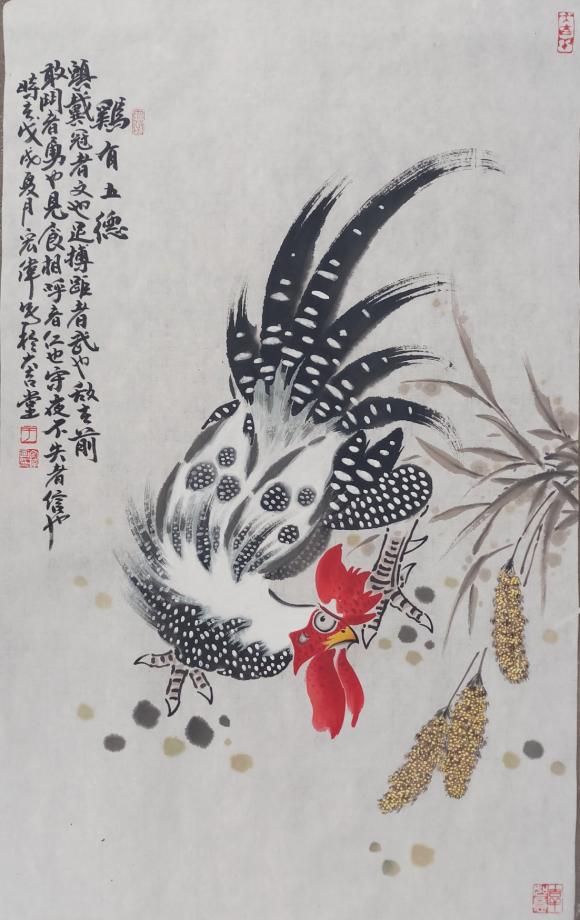 鷄有五德
头戴冠者文也足搏距者武也敌在前
敢鬥者勇也見食相呼者仁也守夜不失者信也
時在戊戌夏月宏偉寫於大吉堂